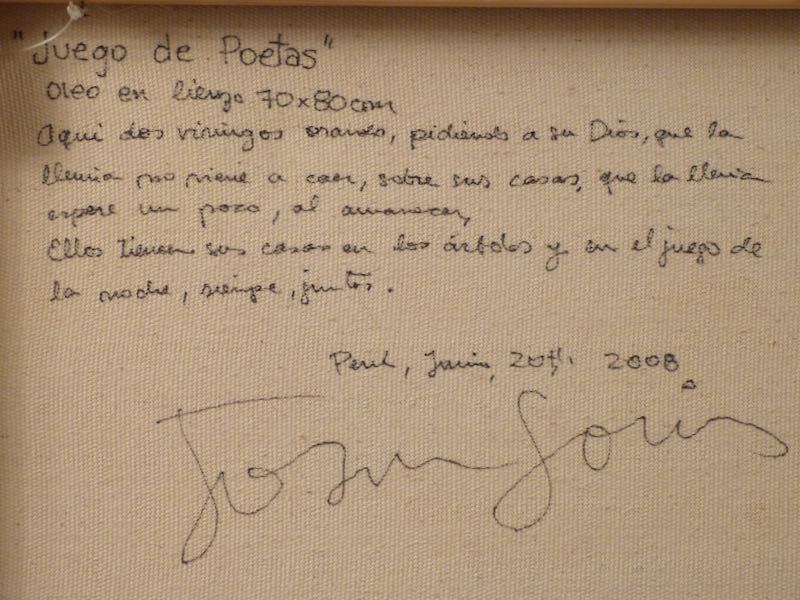 "Juego de Poetas"
Oleo en lienzo 70x80cm
Aqui dos viningos orando, pidiendo a su Dios, que la
lluvia no viene a caer, sobre sus casas, que la lluvia
espere un poco, al amanecer,
Ellos tienen sus casas en los árboles y en el juego de
la noche, siempe, juntos.
Perú, Junio, 20th 2008